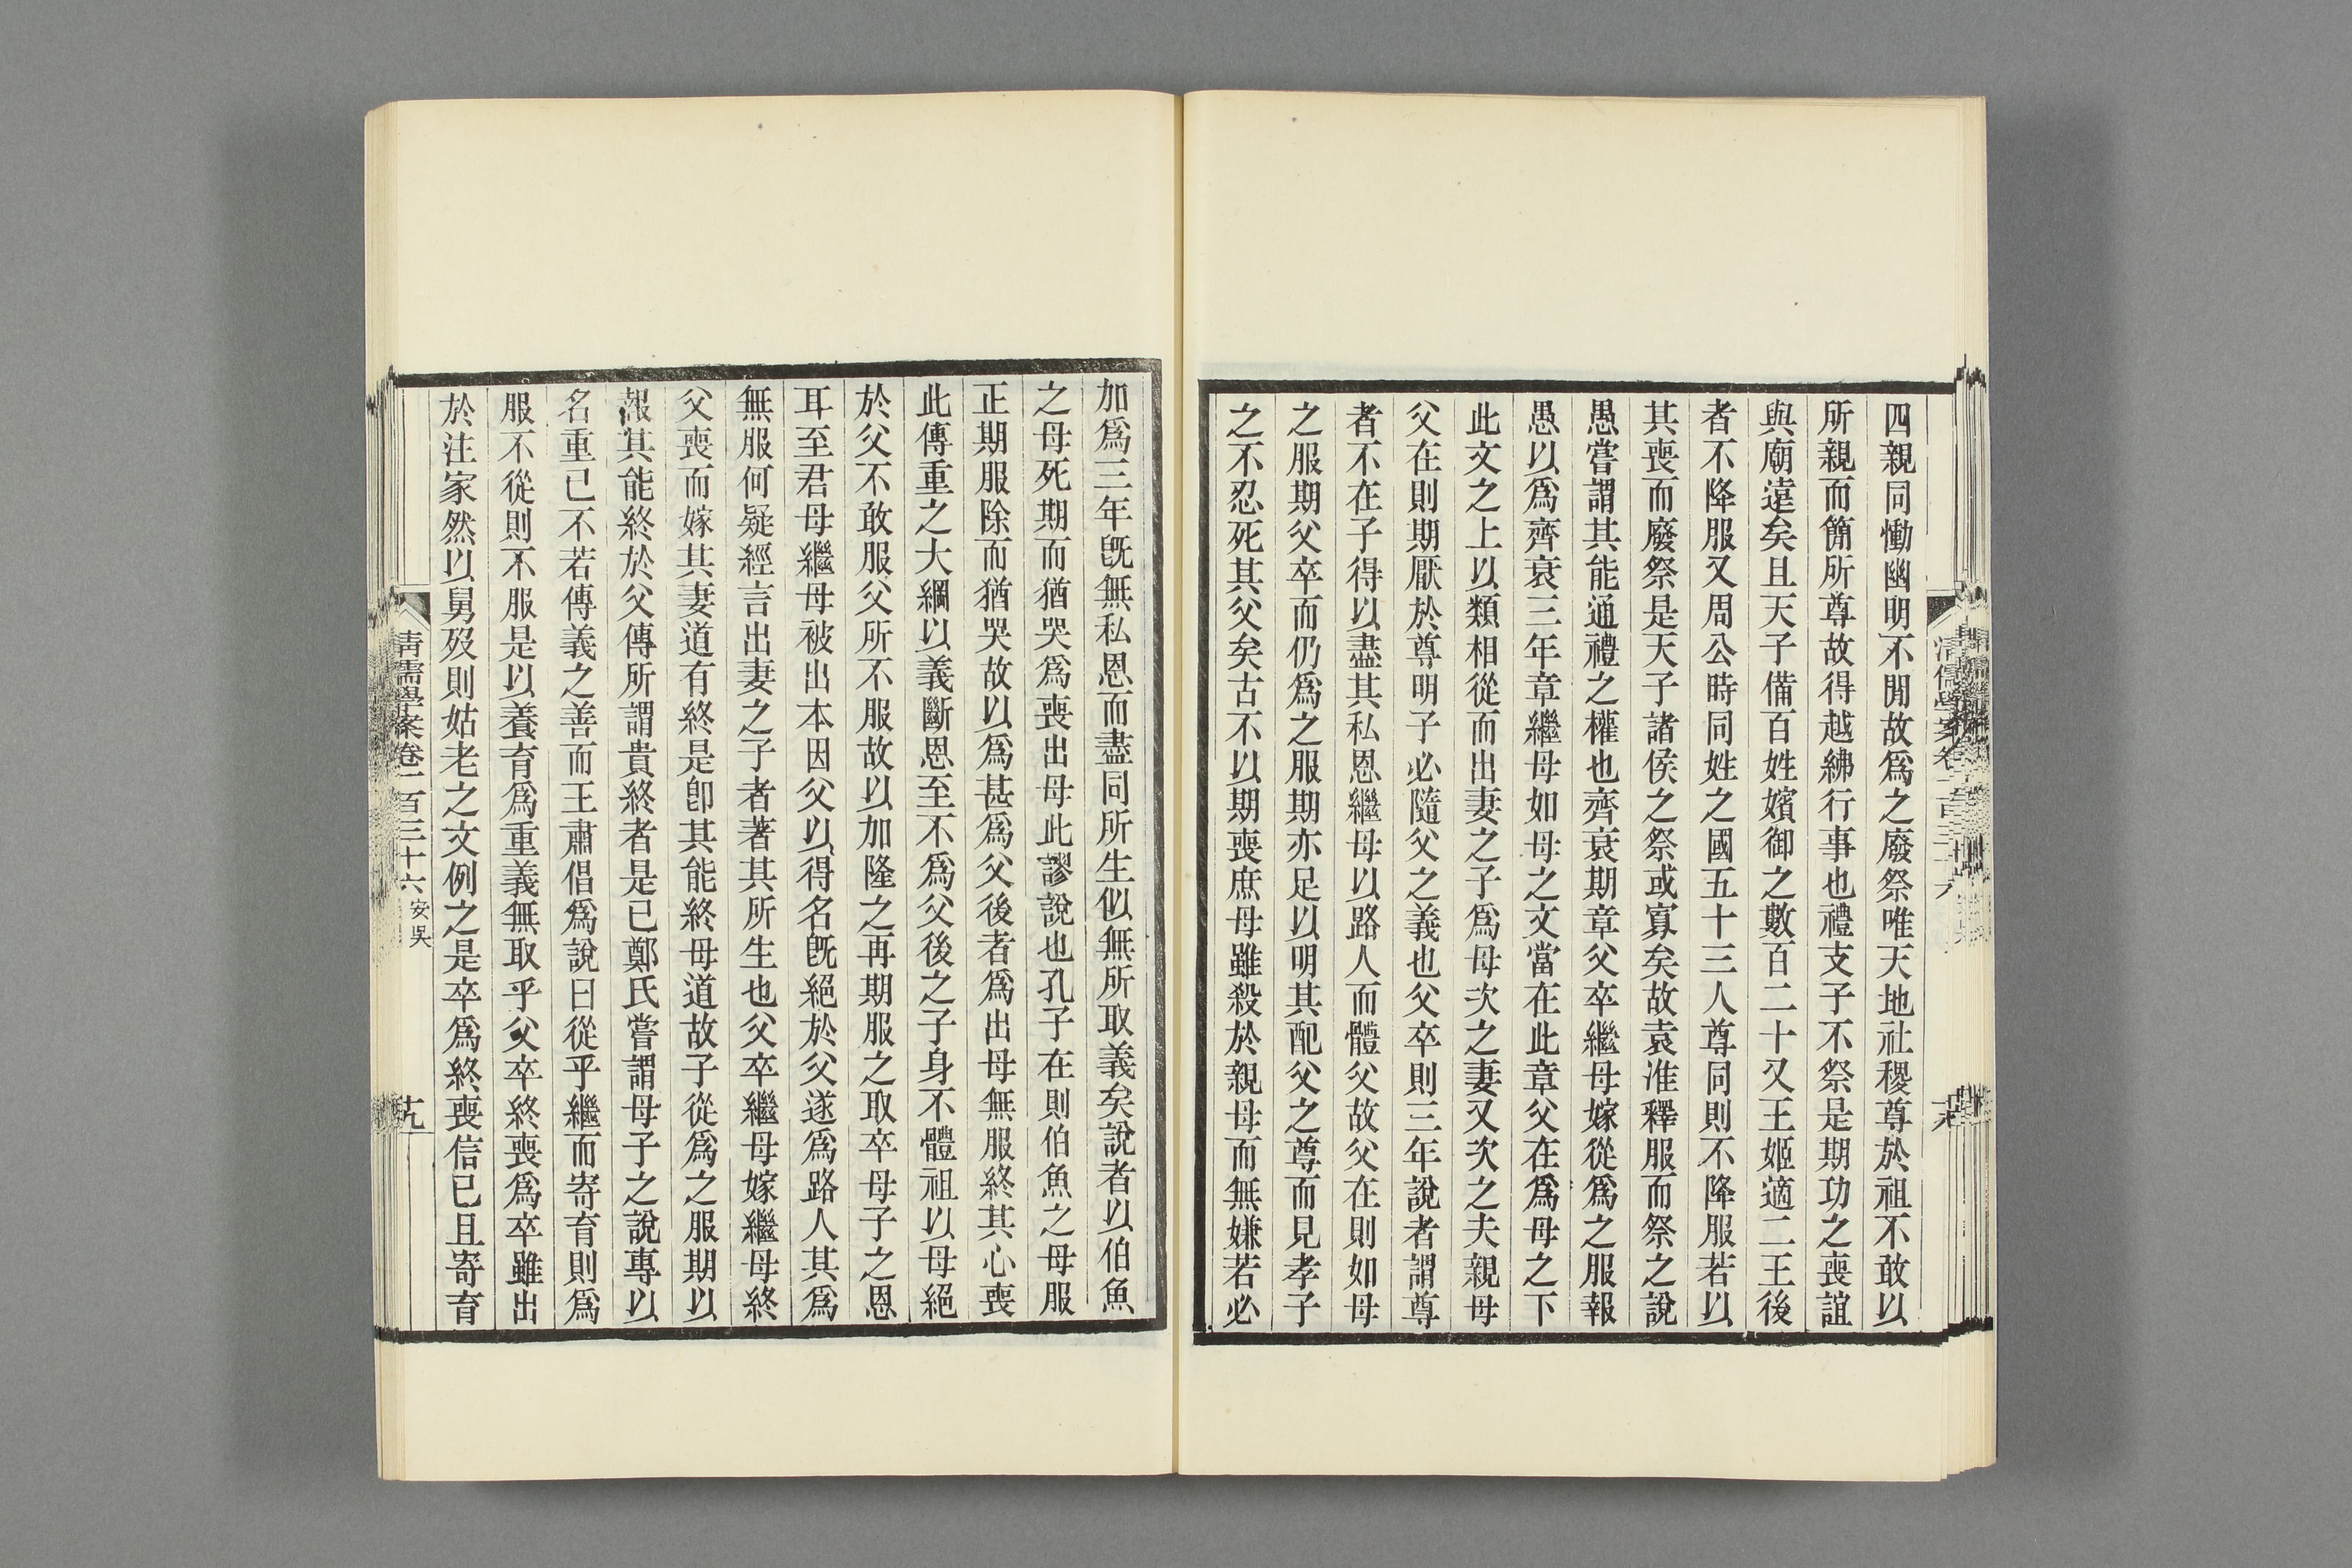 四親同慟幽明不閒故爲之廢祭唯天地社稷尊於祖不敢以
所親而簡所尊故得越紼行事也禮支子不祭是期功之喪誼
與廟遠矣且天子備百姓嬪御之數百二十又王姬適二王後
者不降服又周公時同姓之國五十三人尊同則不降服若以
其喪而廢祭是天子諸侯之祭或寡矣故袁准釋服而祭之說
愚嘗謂其能通禮之權也齊衰期章父卒繼母嫁從爲之服報
愚以爲齊衰三年章繼母如母之文當在此章父在爲母之下
此文之上以類相從而出妻之子爲母次之妻又次之夫親母
父在則期厭於尊明子必隨父之義也父卒則三年說者謂尊
者不在子得以盡其私恩繼母以路人而體父故父在則如母
之服期父卒而仍爲之服期亦足以明其配父之尊而見孝子
之不忍死其父矣古不以期喪庶母雖殺於親母而無嫌若必
加爲三年旣無私恩而盡同所生似無所取義矣說者以伯魚
之母死期而猶哭爲喪出母此謬說也孔子在則伯魚之母服
正期服除而猶哭故以爲甚爲父後者爲出母無服終其心喪
此傳重之大綱以義斷恩至不爲父後之子身不體祖以母絕
於父不敢服父所不服故以加隆之再期服之取卒母子之恩
耳至君母繼母被出本因父以得名旣絕於父遂爲路人其爲
無服何疑經言出妻之子者著其所生也父卒繼母嫁繼母終
父喪而嫁其妻道有終是卽其能終母道故子從爲之服期以
報其能終於父傳所謂貴終者是已鄭氏嘗謂母子之說專以
名重已不若傳義之善而王肅倡爲說曰從乎繼而寄育則爲
服不從則不服是以養育爲重義無取乎父卒終喪爲卒雖出
於注家然以舅歿則姑老之文例之是卒爲終喪信已且寄育
清儒學案卷一百三十六 安吳 十九